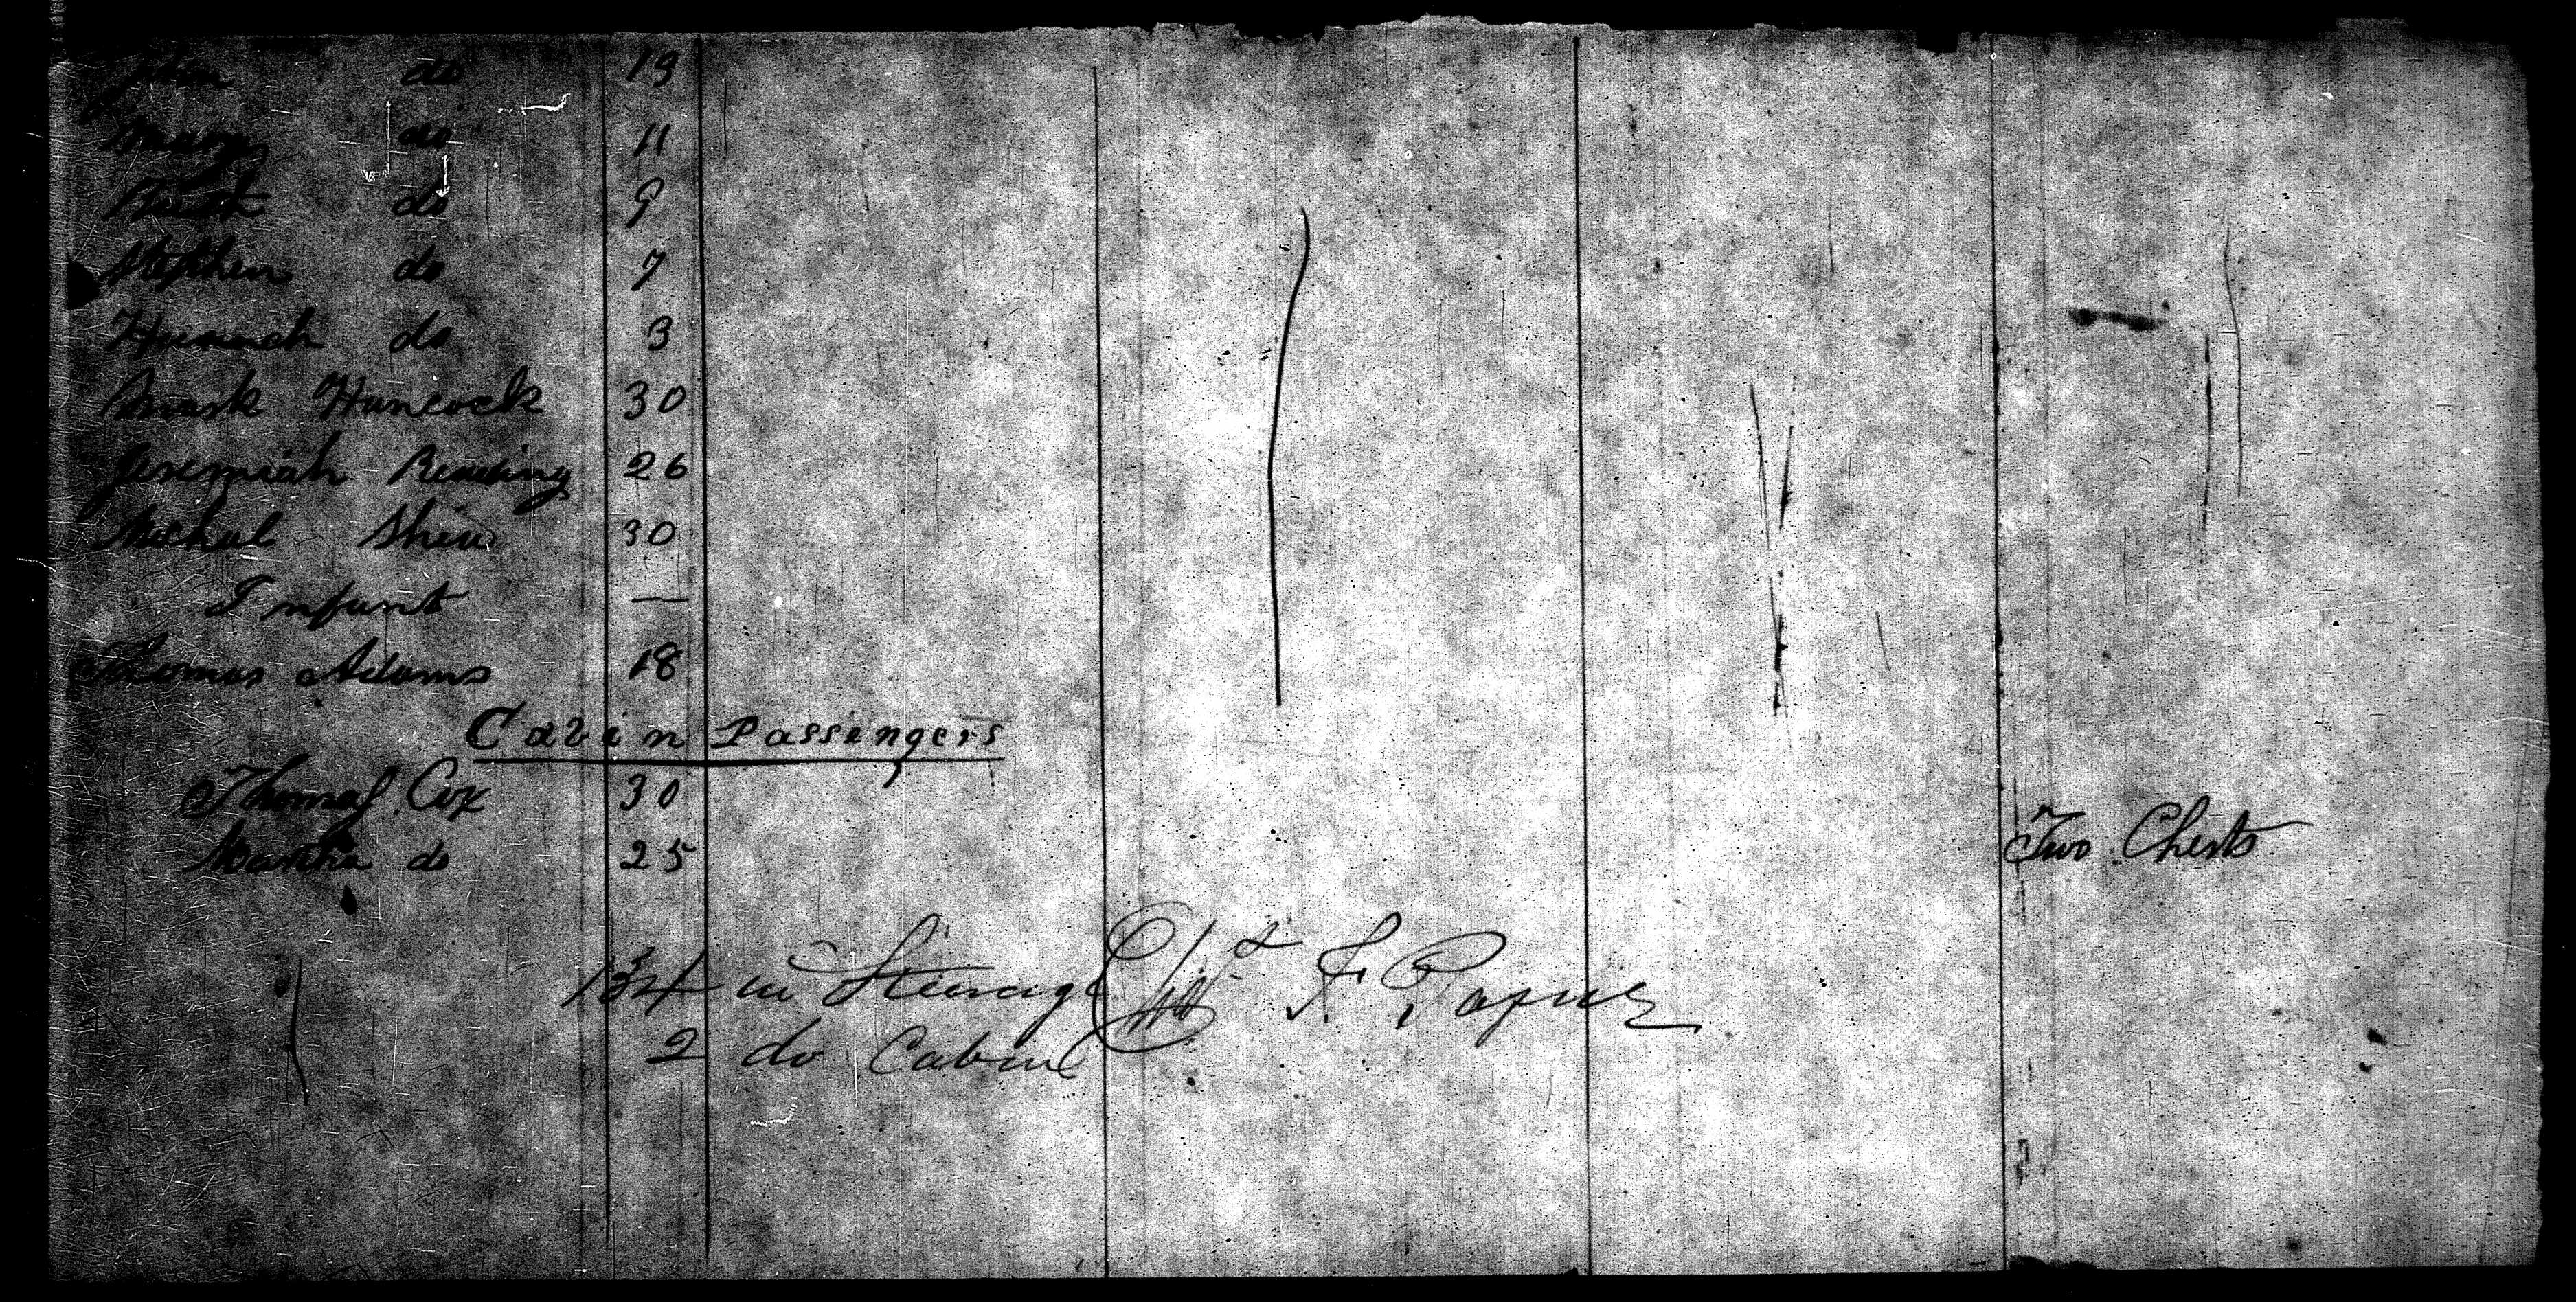 John do 19
Mary do 11
do 9
Stephen do 7
do 3
Mark Hancock 30
Jeremiah 26
Michal Shea 30
Infant —
Thomas Adams 18
Cabin Passengers
Thomas Cox 30
Martha do 25
Two Chests
134 in Steerage
2 do Cabin